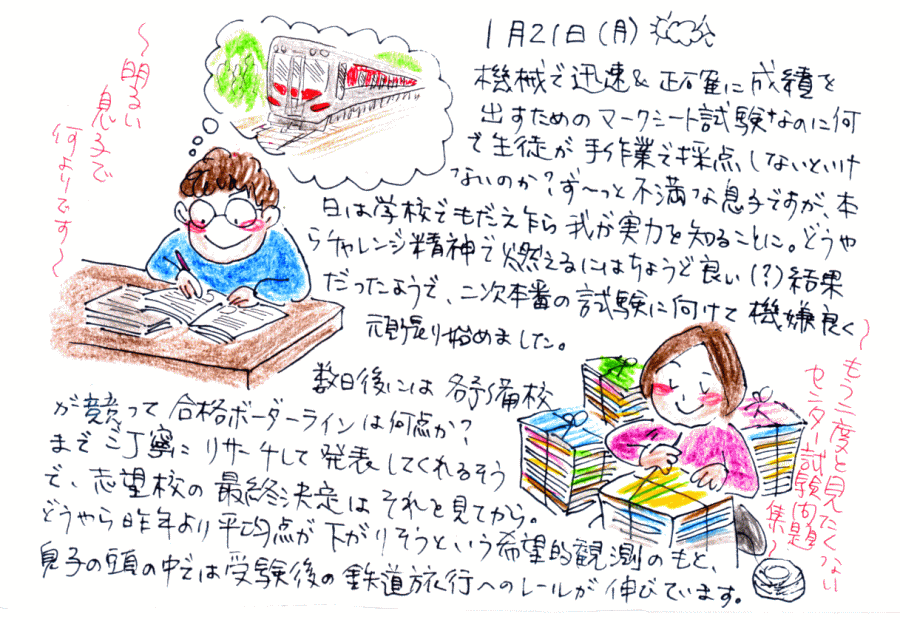 1月21日(月)
機械で迅速&正確に成績を
出すためのマークシート試験なのに何
で生徒が手作業で採点しないといけ
ないのか?ず〜っと不満な息子ですが、本
日は学校でもだえ乍ら我が実力を知ることに。どうや
らチャレンジ精神で燃えるにはちょうど良い(?)結果
だったようで、二次本番の試験に向けて機嫌良く
頑張り始めました。
〜明るい
息子で
何よりです〜
数日後には各予備校
が競って合格ボーダーラインは何点か?
までご丁寧にリサーチして発表してくれるそう
で、志望校の最終決定はそれを見てから。
どうやら昨年より平均点が下がりそうという希望的観測のもと、
息子の頭の中では受験後の鉄道旅行へのレールが伸びています。
〜もう二度と見たくない
センター試験問題
集〜